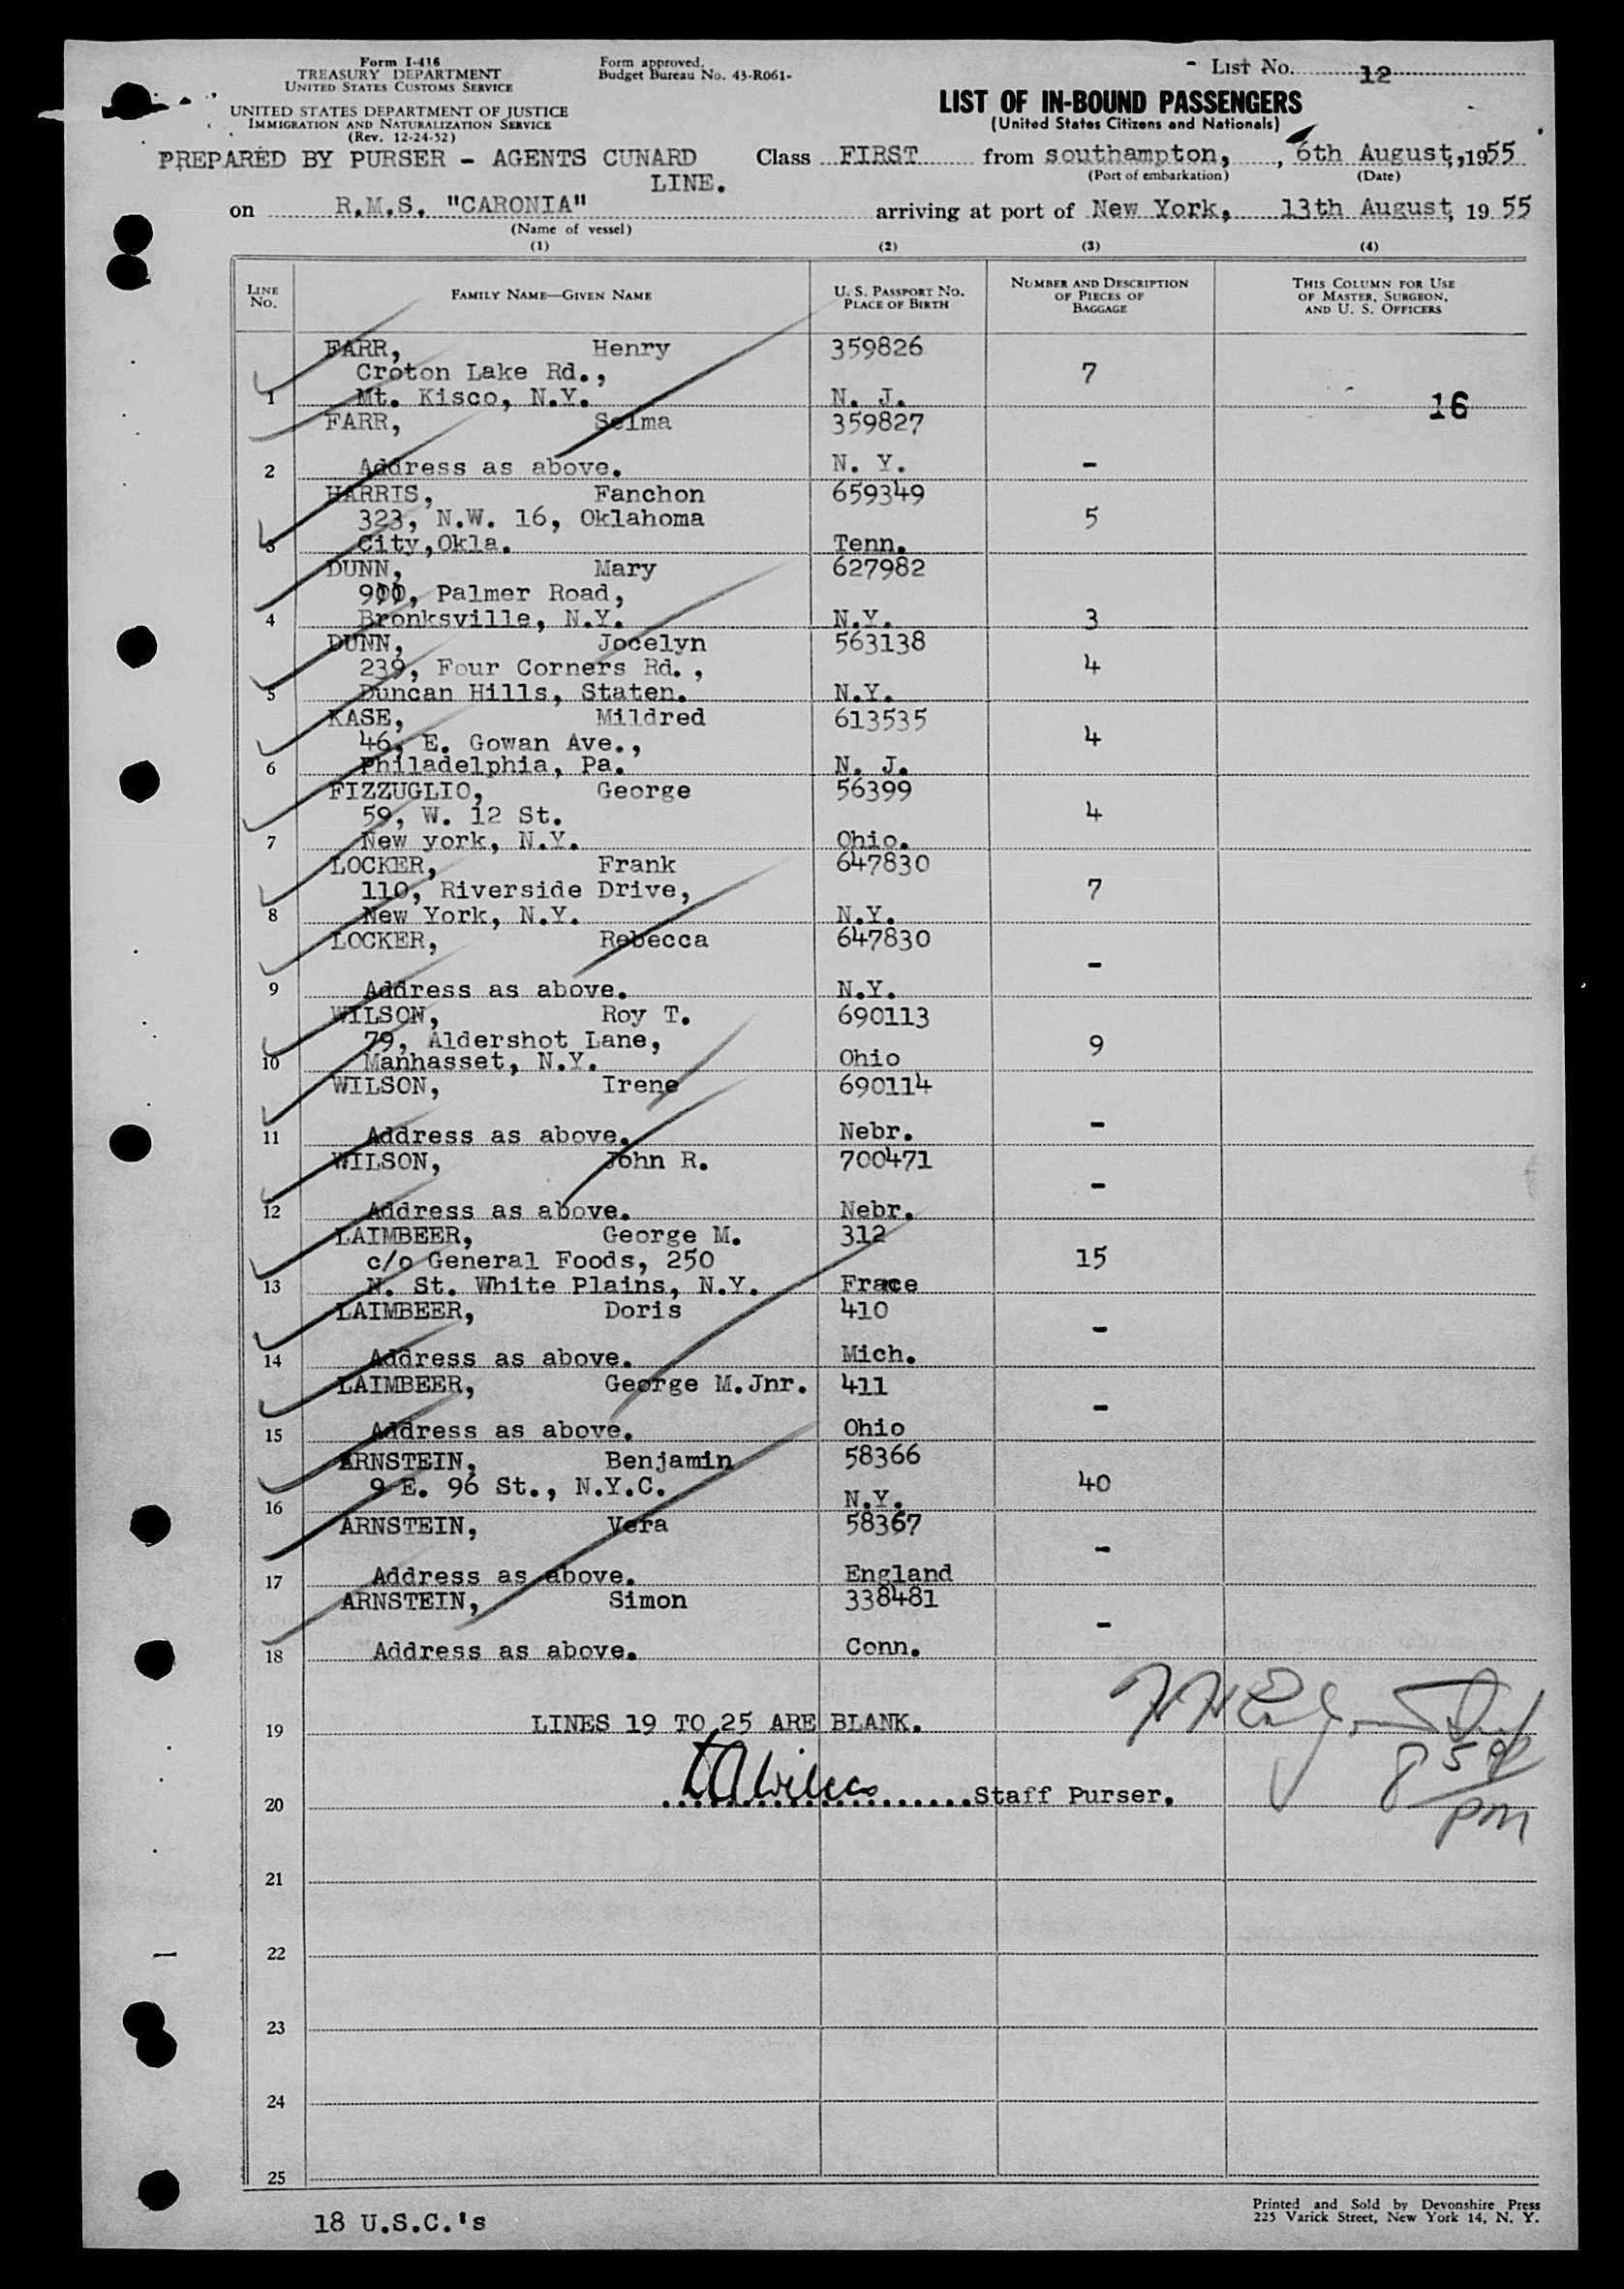 Form I-416
TREASURY DEPARTMENT
UNITED STATES CUSTOMS SERVICE
Form approved.
Budget Bureau No. 43-R061-
List No. 12
UNITED STATES DEPARTMENT OF JUSTICE
IMMIGRATION AND NATURALIZATION SERVICE
(Rev. 12-24-52)
LIST OF IN-BOUND PASSENGERS
(United States Citizens and Nationals)
PREPARED BY PURSER - AGENTS CUNARD LINE.
Class FIRST from southampton, , 6th August, , 1955
(Port of embarkation) (Date)
on R.M.S. "CARONIA" arriving at port of New York, 13th August, 19 55
(Name of vessel)
(1) (2) (3) (4)
LINE No. FAMILY NAME—GIVEN NAME U. S. PASSPORT NO. PLACE OF BIRTH NUMBER AND DESCRIPTION OF PIECES OF BAGGAGE THIS COLUMN FOR USE OF MASTER, SURGEON, AND U. S. OFFICERS
FARR, Henry 359826
Croton Lake Rd., 7
1 Mt. Kisco, N.Y. N. J. 16
FARR, Selma 359827
2 Address as above. N. Y. -
HARRIS, Fanchon 659349
323, N.W. 16, Oklahoma 5
3 City,Okla. Tenn.
DUNN, Mary 627982
900, Palmer Road,
4 Bronksville, N.Y. N.Y. 3
DUNN, Jocelyn 563138
239, Four Corners Rd., 4
5 Duncan Hills, Staten. N.Y.
KASE, Mildred 613535
46, E. Gowan Ave., 4
6 Philadelphia, Pa. N. J.
FIZZUGLIO, George 56399
59, W. 12 St. 4
7 New york, N.Y. Ohio.
LOCKER, Frank 647830
110, Riverside Drive, 7
8 New York, N.Y. N.Y.
LOCKER, Rebecca 647830
-
9 Address as above. N.Y.
WILSON, Roy T. 690113
79, Aldershot Lane, 9
10 Manhasset, N.Y. Ohio
WILSON, Irene 690114
11 Address as above. Nebr. -
WILSON, John R. 700471
-
12 Address as above. Nebr.
LAIMBEER, George M. 312
c/o General Foods, 250 15
13 N. St. White Plains, N.Y. Frace
LAIMBEER, Doris 410
-
14 Address as above. Mich.
LAIMBEER, George M.Jnr. 411
-
15 Address as above. Ohio
ARNSTEIN, Benjamin 58366
9 E. 96 St., N.Y.C. 40
16 N.Y.
ARNSTEIN, Vera 58367
-
17 Address as above. England
ARNSTEIN, Simon 338481
-
18 Address as above. Conn.
19 LINES 19 TO 25 ARE BLANK.
20 Staff Purser.
pm
21
22
23
24
25
18 U.S.C.'s
Printed and Sold by Devonshire Press
225 Varick Street, New York 14, N. Y.